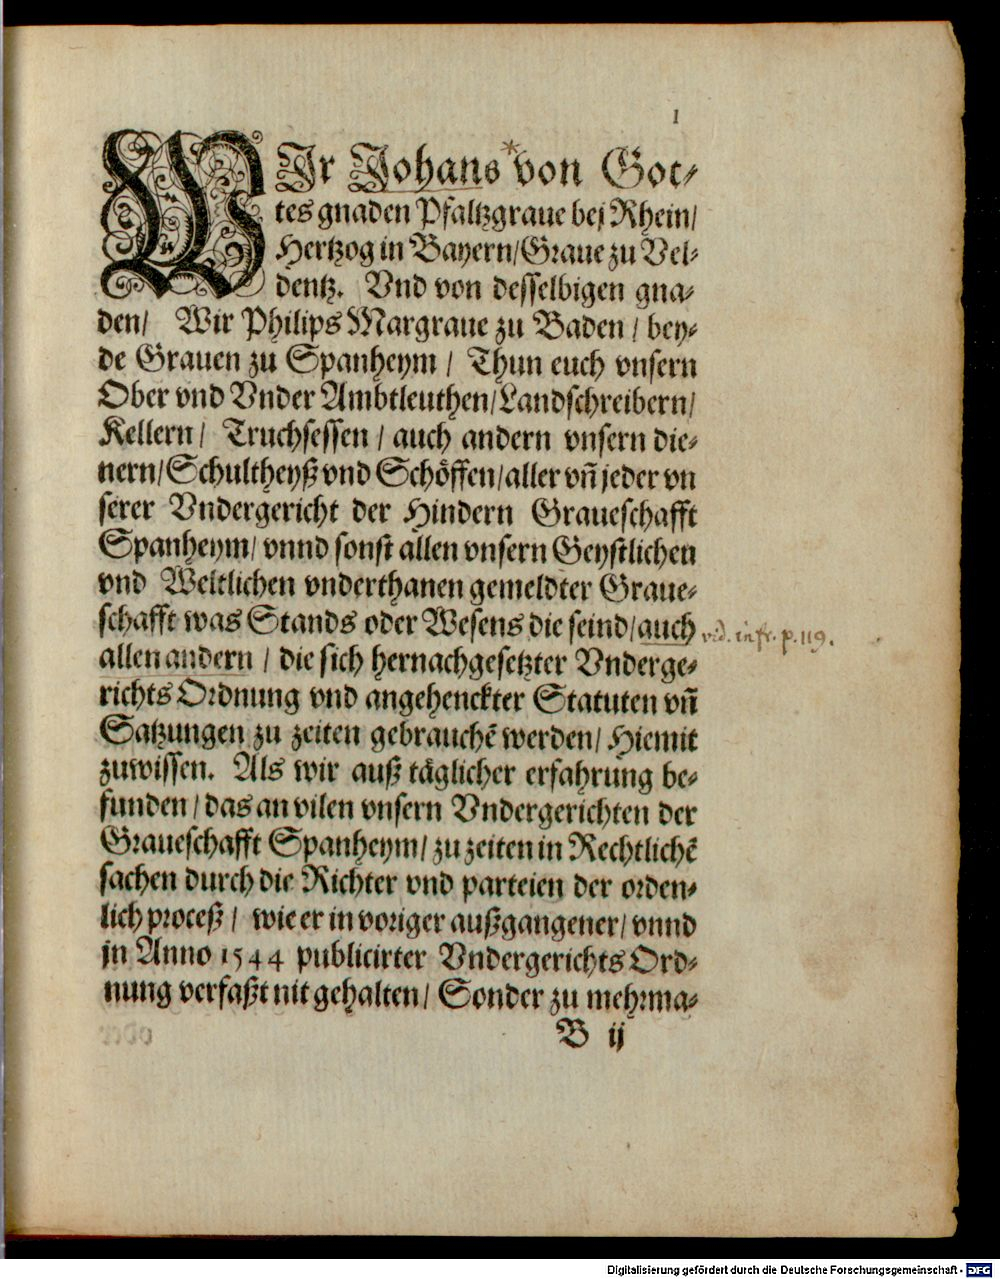 1
WJr Johans von Got⸗
tes gnaden Pfaltzgraue bej Rhein/
Hertzog in Bayern/Graue zu Vel⸗
dentz. Vnd von desselbigen gna⸗
den/ Wir Philips Margraue zu Baden / bey⸗
de Grauen zu Spanheym / Thun euch vnsern
Ober vnd Vnder Ambtleuthen/Landschreibern/
Kellern/ Truchsessen / auch andern vnsern die⸗
nern/Schultheyß vnd Schöffen/aller vñ jeder vn
serer Vndergericht der Hindern Graueschafft
Spanheym/ vnnd sonst allen vnsern Geystlichen
vnd Weltlichen vnderthanen gemeldter Graue⸗
schafft was Stands oder Wesens die seind/auch
vid. infr. p. 119.
allen andern / die sich hernachgesetzter Vnderge⸗
richts Ordnung vnd angehenckter Statuten vñ
Satzungen zu zeiten gebrauchẽ werden/ Hiemit
zuwissen. Als wir auß täglicher erfahrung be⸗
funden / das an vilen vnsern Vndergerichten der
Graueschafft Spanheym/ zu zeiten in Rechtlichẽ
sachen durch die Richter vnd parteien der orden⸗
lich proceß / wie er in voriger außgangener/ vnnd
jn Anno 1544 publicirter Vndergerichts Ord⸗
nung verfaßt nit gehalten/ Sonder zu mehrma⸗
B ij
Digitalisierung gefördert durch die Deutsche Forschungsgemeinschaft - DFG